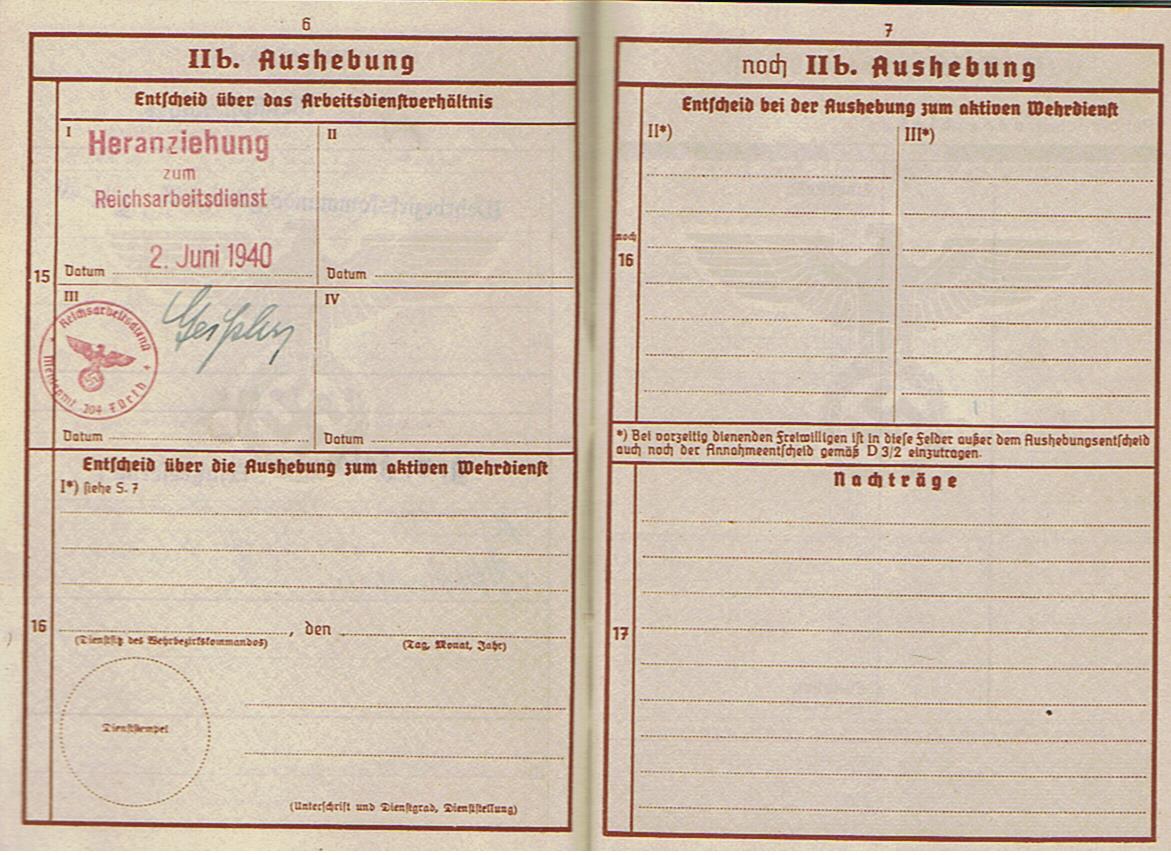 6
IIb. Aushebung
Entscheid über das Arbeitsdienstverhältnis
15
I
Heranziehung
zum
Reichsarbeitsdienst
Datum 2. Juni 1940
II
Datum
III
Reichsarbeitsdienst
Meldeamt 304 Fürth
Datum
IV
Datum
Entscheid über die Aushebung zum aktiven Wehrdienst
16
I*) siehe S. 7
, den
(Dienstsitz des Wehrbezirkskommandos)
(Tag, Monat, Jahr)
Dienststempel
(Unterschrift und Dienstgrad, Dienststellung)
7
noch IIb. Aushebung
Entscheid bei der Aushebung zum aktiven Wehrdienst
noch
16
II*)
III*)
*) Bei vorzeitig dienenden Freiwilligen ist in diese Felder außer dem Aushebungsentscheid
auch noch der Annahmeentscheid gemäß D 3/2 einzutragen.
Nachträge
17